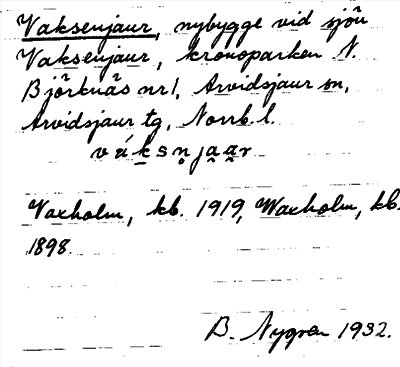 Vaksenjaur, nybygge vid sjön
Vaksenjaur, kronoparken N.
Björknäs nr 1, Arvidsjaur sn,
Arvidsjaur tg, Norrb. l.
vúksnjaar
Vaxholm, kb. 1919, Waxholm, kb.
1898.
B. Nygren 1932.